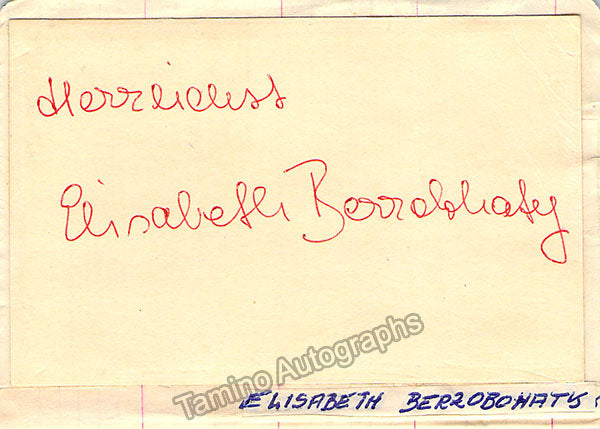 Herzlichst
Elisabeth Berzobohaty
Tamino Autographs
ELISABETH BERZOBOHATY